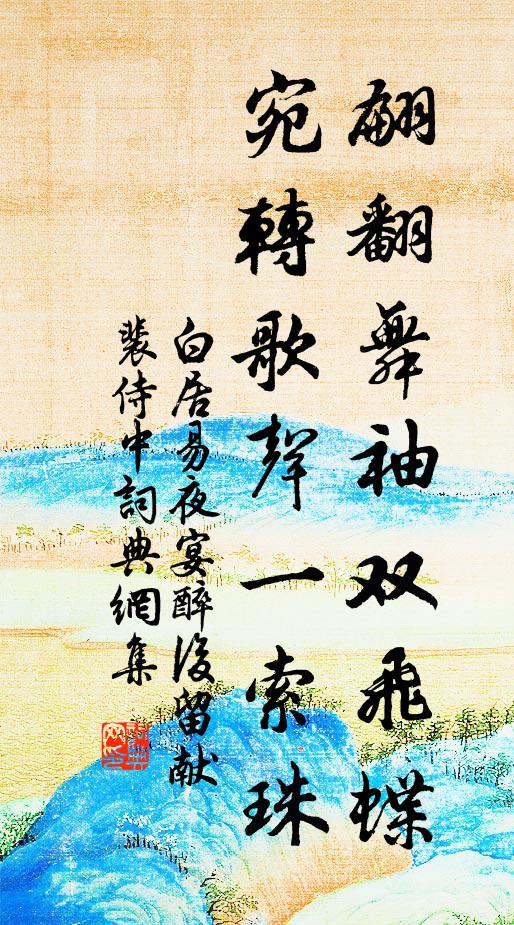 翩翻舞袖双飛蝶
宛轉歌聲一索珠
白居易夜宴醉後留献
裴侍中詞典網集